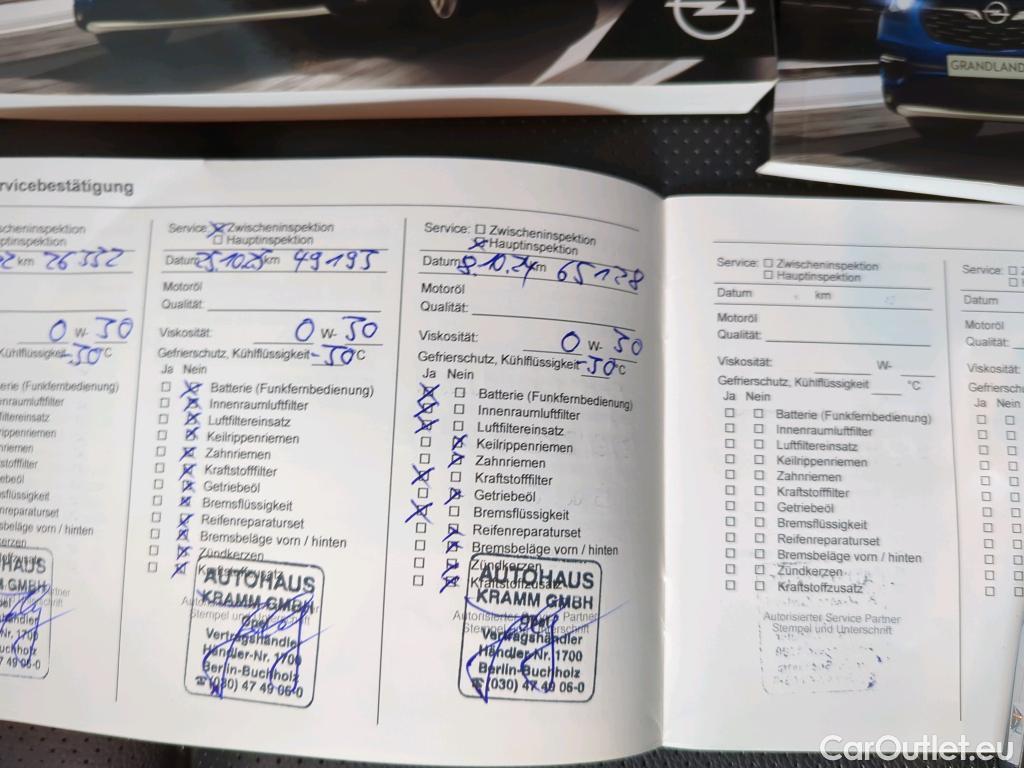 GRANDLAND
rvicebestätigung
scheninspektion
ptinspektion
km 26332
0 W- 30
Kühlflüssigkeit -30 °C
erie (Funkfernbedienung)
enraumluftfilter
filtereinsatz
rippenriemen
nriemen
stofffilter
ebeöl
sflüssigkeit
enreparaturset
sbeläge vorn / hinten
erzen
HAUS
M GMBH
Nr. 1700
Service: Zwischeninspektion
Hauptinspektion
Datum 25.10.23 km 49193
Motoröl
Qualität:
Viskosität: 0 W- 30
Gefrierschutz, Kühlflüssigkeit -30 °C
Ja Nein
Batterie (Funkfernbedienung)
Innenraumluftfilter
Luftfiltereinsatz
Keilrippenriemen
Zahnriemen
Kraftstofffilter
Getriebeöl
Bremsflüssigkeit
Reifenreparaturset
Bremsbeläge vorn / hinten
Zündkerzen
Kraftstoffzusatz
Stempel und Unterschrift
AUTOHAUS
KRAMM GMBH
Opel
Vertragshändler
Händler-Nr. 1700
Berlin-Buchholz
☎(030) 47 49 06-0
Service: Zwischeninspektion
Hauptinspektion
Datum 8.10.24 km 65128
Motoröl
Qualität:
Viskosität: 0 W- 30
Gefrierschutz, Kühlflüssigkeit -30 °C
Ja Nein
Batterie (Funkfernbedienung)
Innenraumluftfilter
Luftfiltereinsatz
Keilrippenriemen
Zahnriemen
Kraftstofffilter
Getriebeöl
Bremsflüssigkeit
Reifenreparaturset
Bremsbeläge vorn / hinten
Zündkerzen
Kraftstoffzusatz
Autorisierter Service Partner
Stempel und Unterschrift
AUTOHAUS
KRAMM GMBH
Opel
Vertragshändler
Händler-Nr. 1700
Berlin-Buchholz
☎(030) 47 49 06-0
Service: Zwischeninspektion
Hauptinspektion
Datum km
Motoröl
Qualität:
Viskosität: W-
Gefrierschutz, Kühlflüssigkeit °C
Ja Nein
Batterie (Funkfernbedienung)
Innenraumluftfilter
Luftfiltereinsatz
Keilrippenriemen
Zahnriemen
Kraftstofffilter
Getriebeöl
Bremsflüssigkeit
Reifenreparaturset
Bremsbeläge vorn / hinten
Zündkerzen
Kraftstoffzusatz
Autorisierter Service Partner
Stempel und Unterschrift
Service:
Datum
Motoröl
Qualität:
Viskosität:
Gefriersch
Ja Nein
CarOutlet.eu